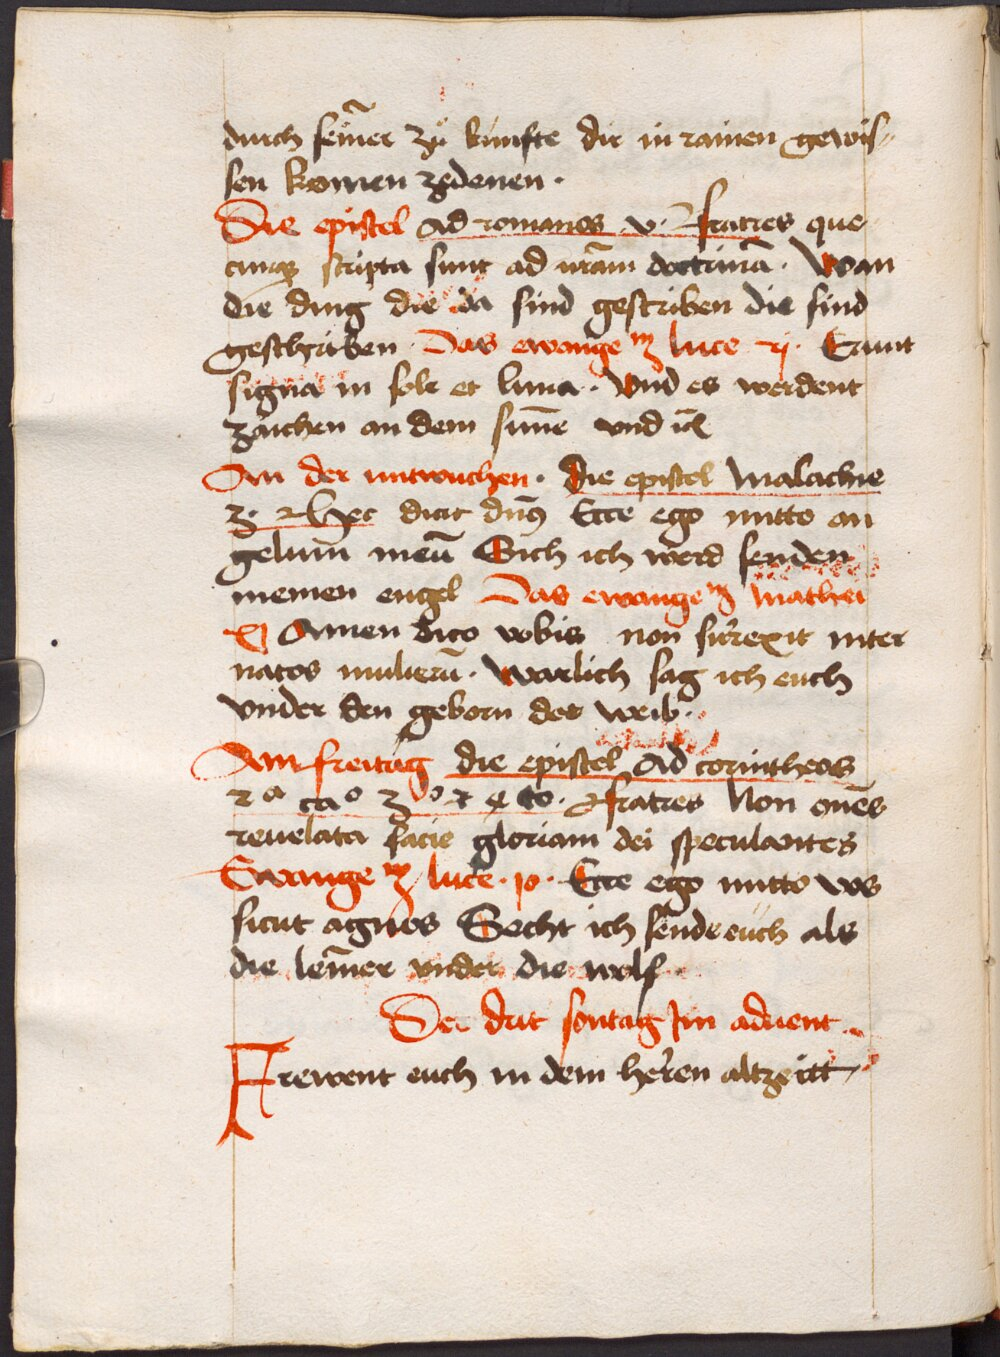 durch sein̄er zů kunfte dir in rainen gewis-
sen komen zedenen .
Die epistel ad romanos v. fratres que
cūnqꝫ scripta sunt ad nr̄am doctrinā . Wan
die ding die da sind gestriben die sind
geschriben . Das ewange m̄ luce Erunt
signa in sole et luna . vnd es werdent
zaichen an dem sun̄e vnd
An der mitwuchen . die epistel Malachie
3. Hec dicit dn̄s Ecce ego mitto an
gelum meū Sich ich werd senden
meinen engel Das ewange m̄ mathei
xi Amen dico vobis non surrexit inter
natos mulierū . warlich sag ich euch
vnder den geborn der weib .
Am freitag die epistel Ad corintheos
2ᵃ caᵒ 3ᵒ ⁊ 4 to . fratres Non om̄es
reuelata facie gloriam dei speculantes
Ewange m̄ luce . 10 . Ecce ego mitto vos
sicut agnos Secht ich sende euch als
die lem̄er vnder die wolf
Der drit sontag Im aduent
Frewent euch in dem heren altzeitt